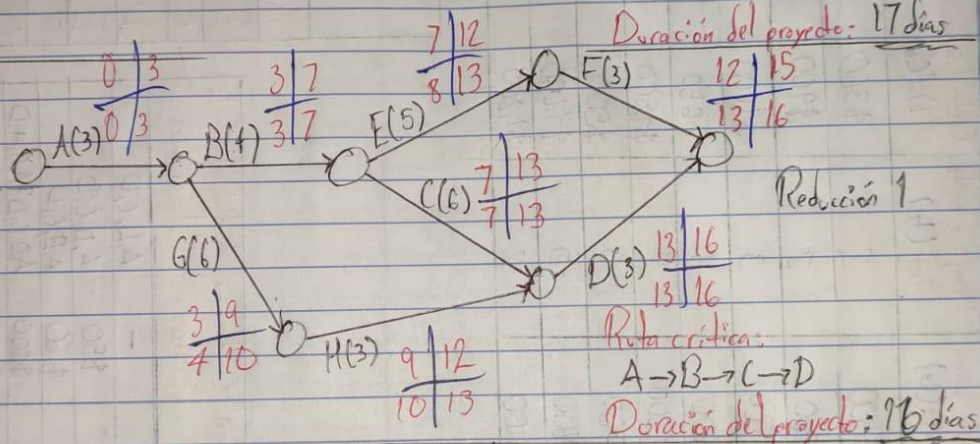 Duración del proyecto: 17 días
0 | 3
0 | 3
3 | 7
3 | 7
7 | 12
8 | 13
12 | 15
13 | 16
A(3)
B(4)
E(5)
F(3)
C(6)
7 | 13
7 | 13
Reducción 1
G(6)
D(3)
13 | 16
13 | 16
3 | 9
4 | 10
H(3)
9 | 12
10 | 13
Ruta crítica:
A→B→C→D
Duración del proyecto: 16 días